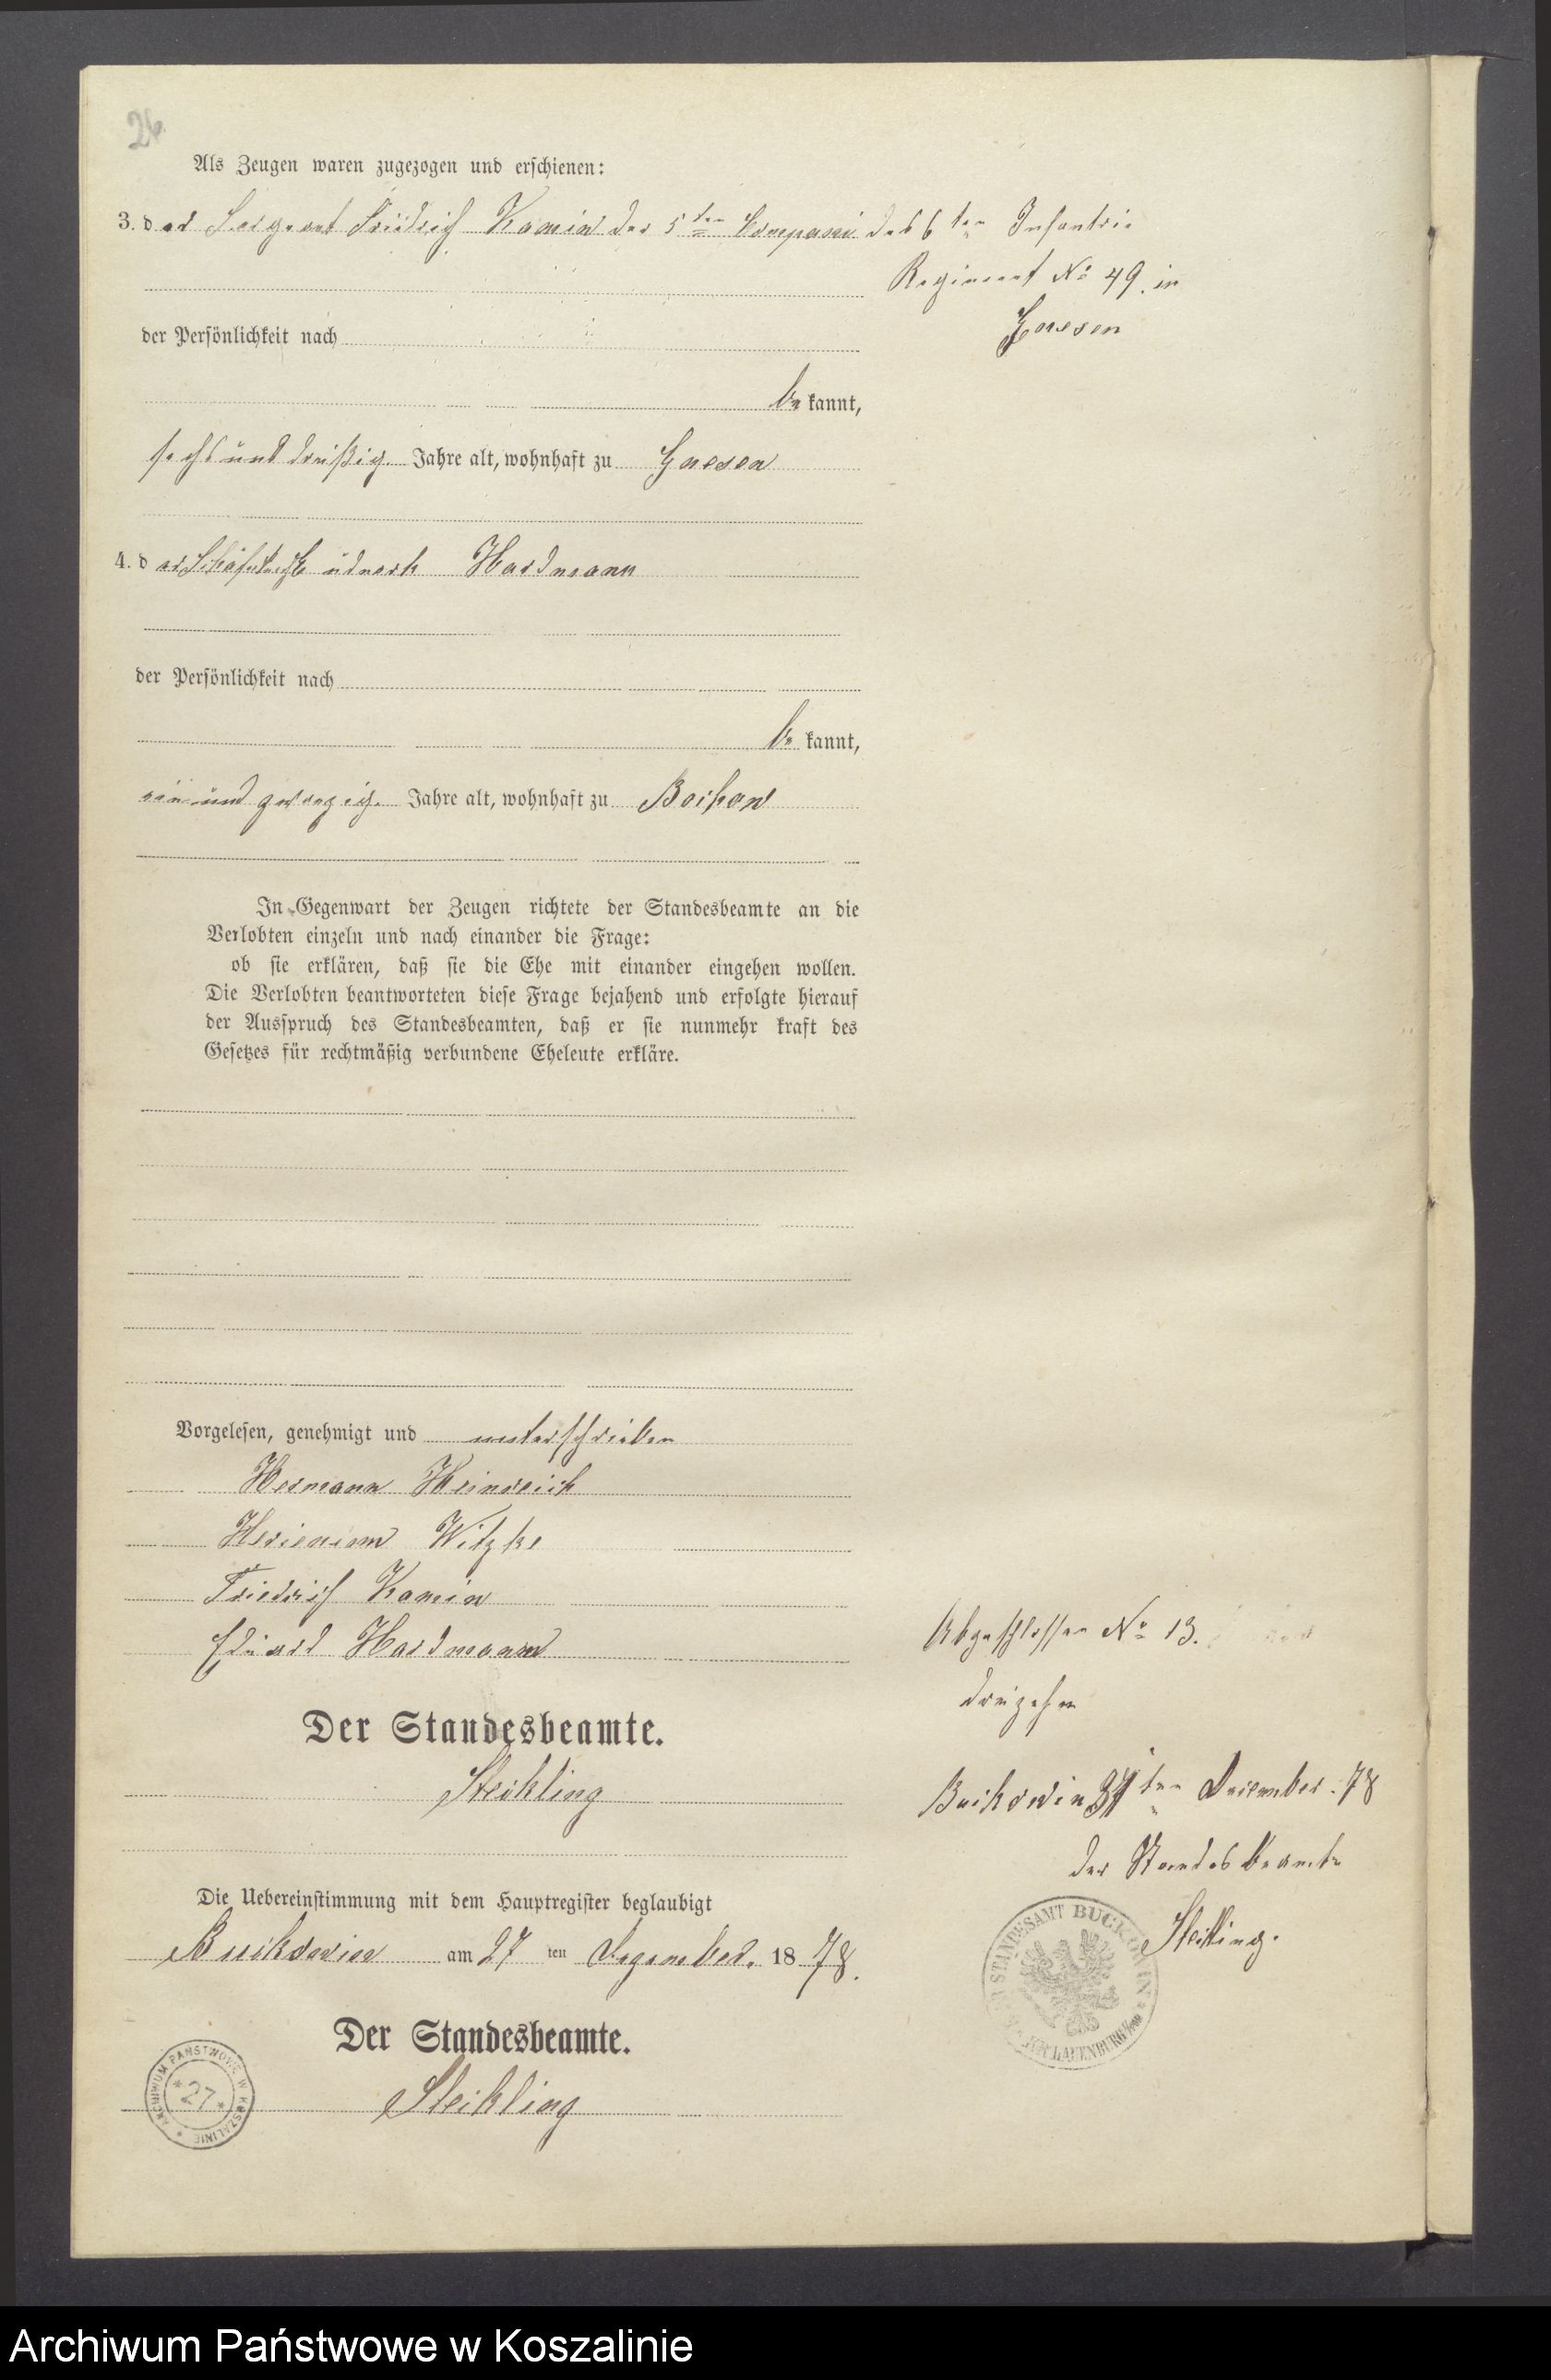 26
Als Zeugen waren zugezogen und erschienen:
3. der Sergeant Friedrich Kamin der 5ten Compani des 6ten Infantrie
Regiment No 49. in
Gnesen
der Persönlichkeit nach
be kannt,
sechs und dreißig Jahre alt, wohnhaft zu Gnesen
4. der Hardmann
der Persönlichkeit nach
be kannt,
ein und zwanzig Jahre alt, wohnhaft zu
In Gegenwart der Zeugen richtete der Standesbeamte an die
Verlobten einzeln und nach einander die Frage:
ob sie erklären, daß sie die Ehe mit einander eingehen wollen.
Die Verlobten beantworteten diese Frage bejahend und erfolgte hierauf
der Ausspruch des Standesbeamten, daß er sie nunmehr kraft des
Gesetzes für rechtmäßig verbundene Eheleute erkläre.
Vorgelesen, genehmigt und unterschrieben
Hermann Heinreich
Witzke
Friedrich Kamin
Eduard Hardmann
Abgeschlossen No 13.
dreizehn
Der Standesbeamte.
Steikling
Buckowin 31ten December 78
der Standesbeamte
Steikling.
Die Uebereinstimmung mit dem Hauptregister beglaubigt
Buckowin am 27 ten Dezember. 18 78.
STANDESAMT BUCKOWIN
LAUENBURG
Der Standesbeamte.
Steikling
ARCHIWUM PAŃSTWOWE W KOSZALINIE
*27*
Archiwum Państwowe w Koszalinie